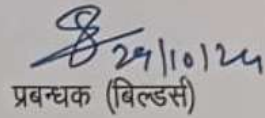 29/10/24
प्रबन्धक (बिल्डर्स)